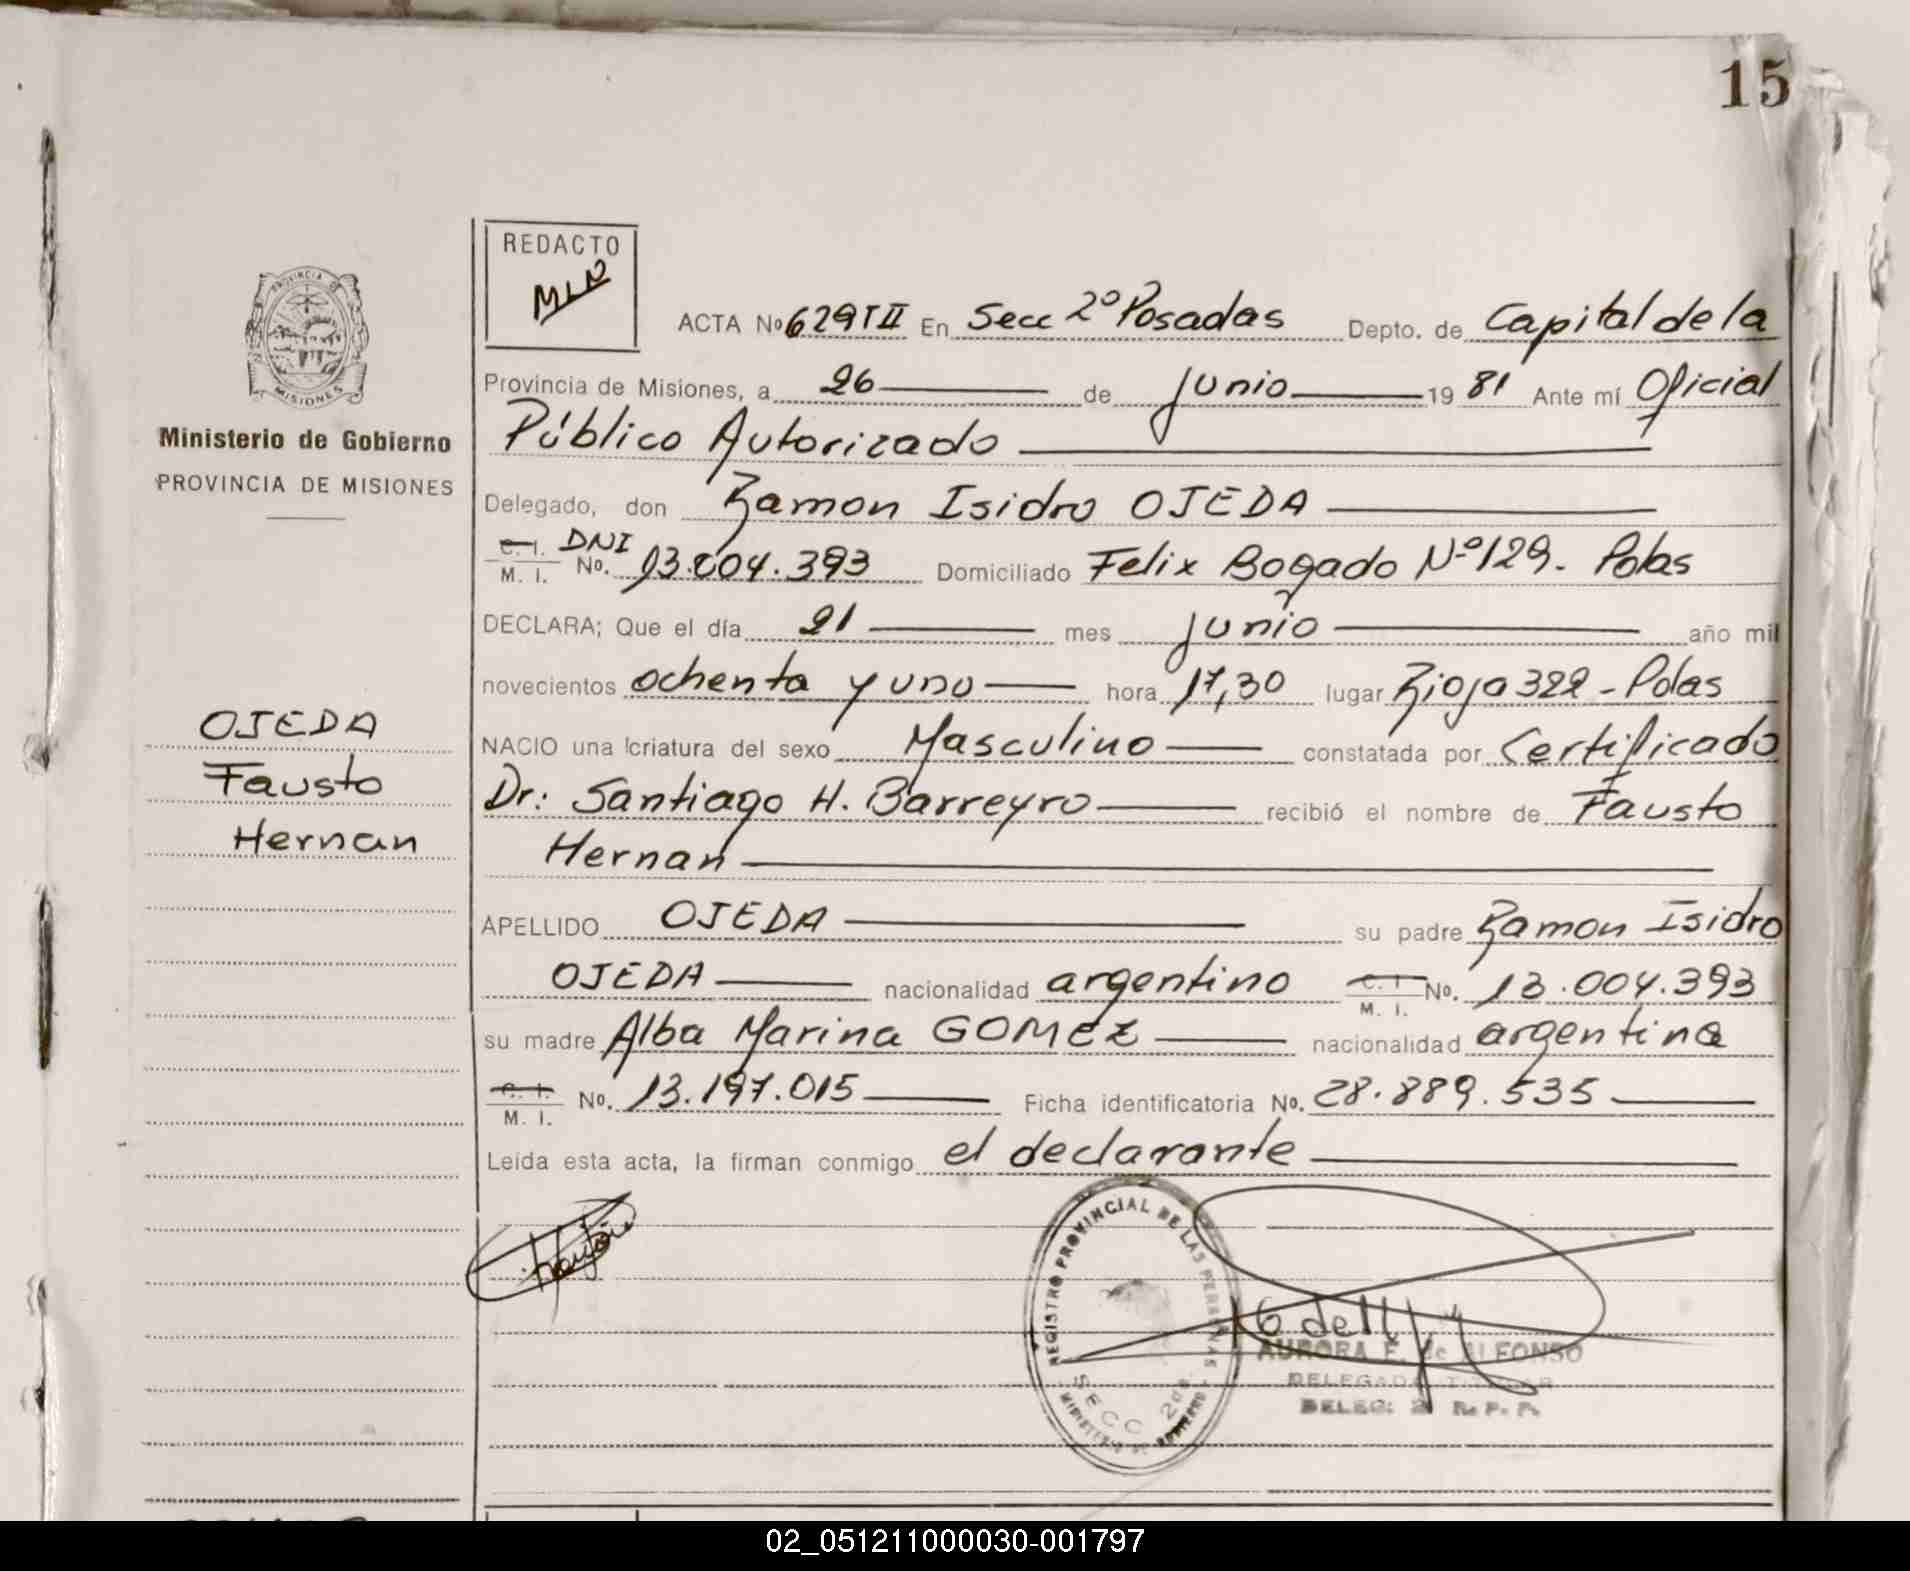 15
REDACTO
MLN
PROVINCIA DE
MISIONES
Ministerio de Gobierno
PROVINCIA DE MISIONES
OJEDA
Fausto
Hernan
ACTA No 629 T II En Secc 2º Posadas Depto. de Capital de la
Provincia de Misiones, a 26 de Junio 19 81 Ante mí Oficial
Público Autorizado
Delegado, don Ramon Isidro OJEDA
C. I. DNI
M. I. No. 13.004.393 Domiciliado Felix Bogado Nº 129. Pdas
DECLARA; Que el día 21 mes Junio año mil
novecientos ochenta y uno hora 17,30 lugar Rioja 322 - Pdas
NACIO una criatura del sexo Masculino constatada por Certificado
Dr: Santiago H. Barreyro recibió el nombre de Fausto
Hernan
APELLIDO OJEDA su padre Ramon Isidro
OJEDA nacionalidad argentino C. I. M. I. No. 13.004.393
su madre Alba Marina GOMEZ nacionalidad argentina
C. I. M. I. No. 13.197.015 Ficha identificatoria No. 28.889.535
Leída esta acta, la firman conmigo el declarante
REGISTRO PROVINCIAL DE LAS PERSONAS
SECC 2da.
MINISTERIO DE GOBIERNO
AURORA E. de ALFONSO
DELEGADA TITULAR
DELEG: 2 R. P. P.
02_051211000030-001797